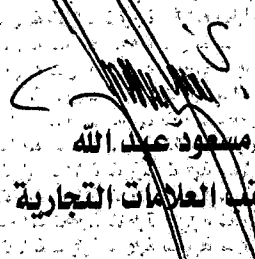 مسعود عبد الله
العلامات التجارية